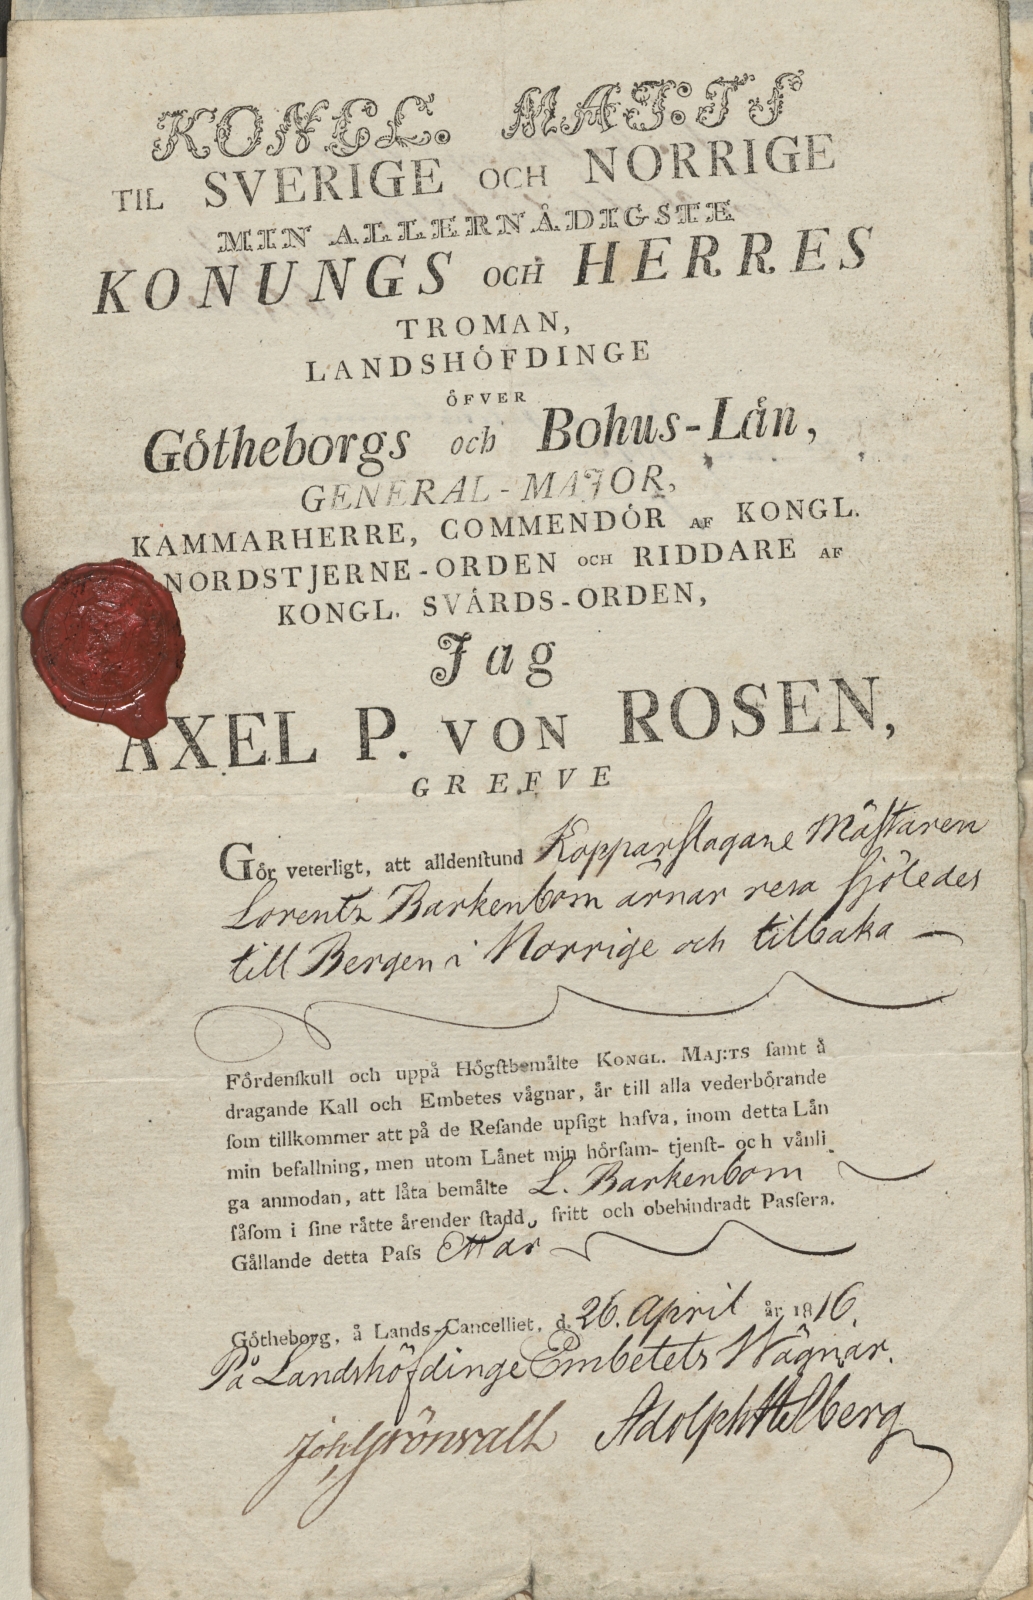 KONGL. MAJ:TS
TIL SVERIGE OCH NORRIGE
MIN ALLERNÅDIGSTE
KONUNGS OCH HERRES
TROMAN,
LANDSHÖFDINGE
ÖFVER
Götheborgs och Bohus-Lån,
GENERAL-MAJOR,
KAMMARHERRE, COMMENDÖR AF KONGL.
NORDSTJERNE-ORDEN OCH RIDDARE AF
KONGL. SVÅRDS-ORDEN,
Jag
AXEL P. VON ROSEN,
GREFVE
Gör veterligt, att alldenſtund Kopparſlagare Mäſtaren
Lorentz Barkenbom ärnar resa ſjöledes
till Bergen i Norrige och tilbaka —
Fördenſkull och uppå Högſtbemålte KONGL. MAJ:TS ſamt å
dragande Kall och Embetes vågnar, år till alla vederbörande
ſom tillkommer att på de Reſande upſigt hafva, inom detta Lån
min befallning, men utom Lånet min hörſam- tjenſt- och vånli
ga anmodan, att låta bemålte L. Barkenbom
ſåſom i ſine råtte årender ſtadd, fritt och obehindradt Paſſera.
Gållande detta Paſs Ett år
Götheborg, å Lands-Cancelliet, d. 26. April år 1816.
På Landshöfdinge Embetets Wägnar.
Joh Grönvall Adolph Helberg